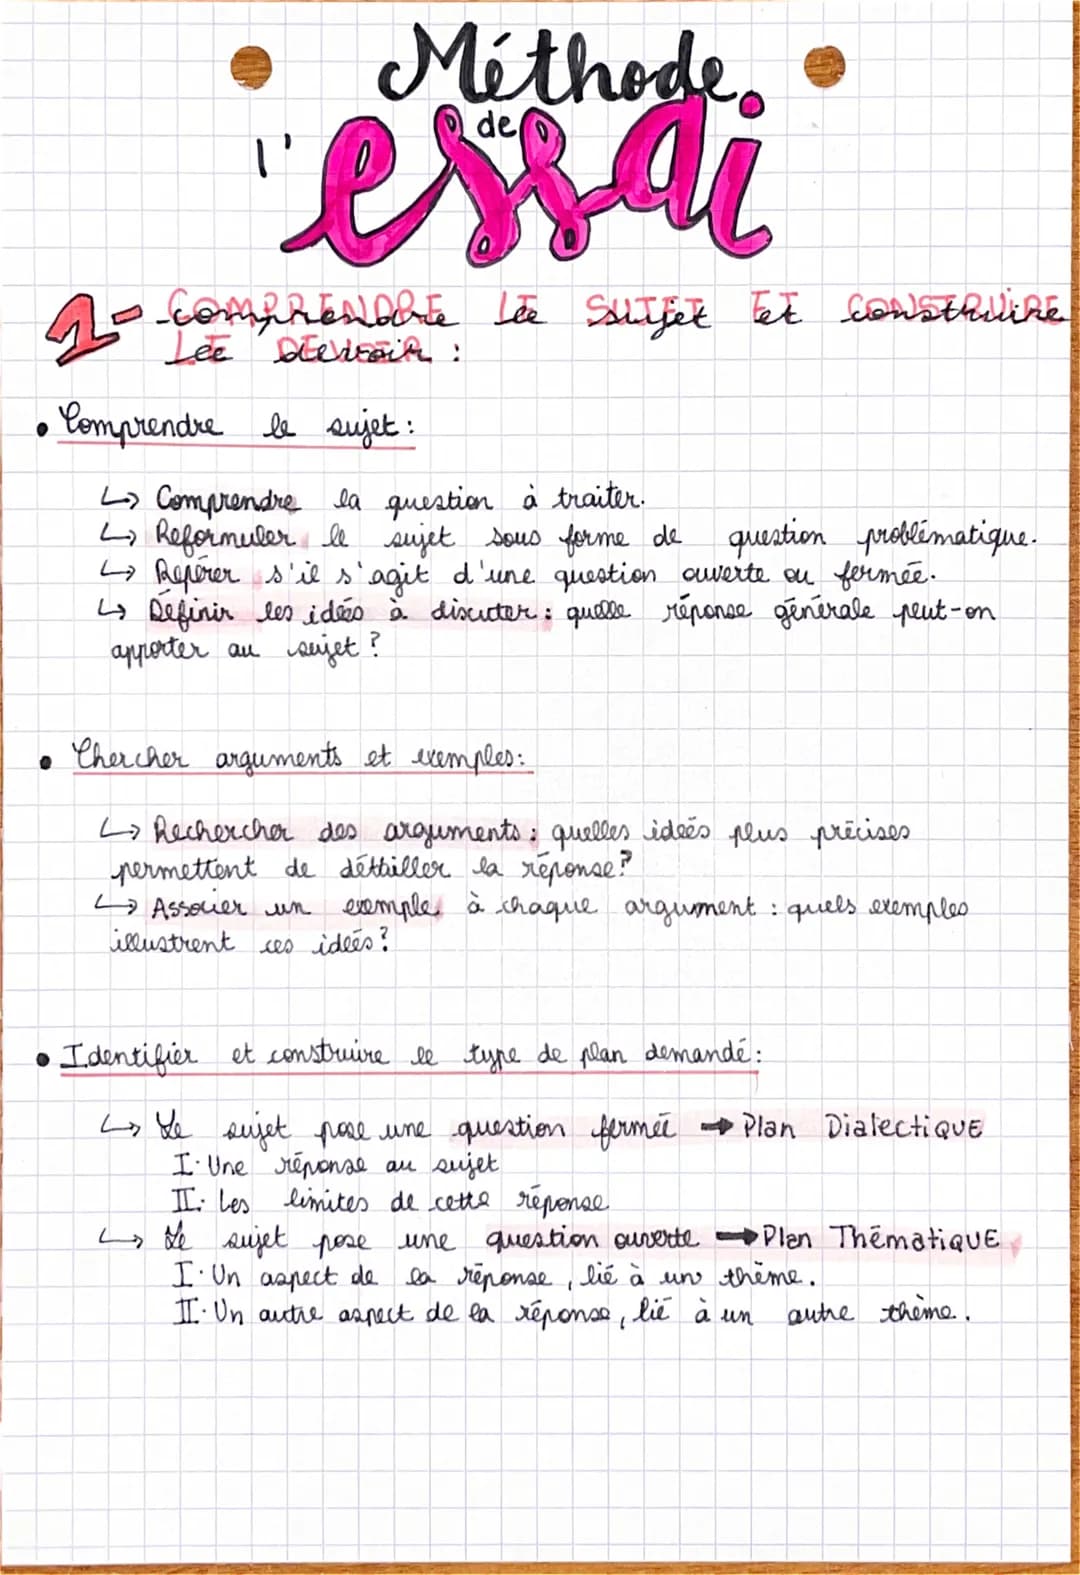 Méthode
de
l'essai
1- COMPRENDRE LE SUJET ET CONSTRUIRE
LE DEVOIR :
• Comprendre le sujet :
↳ Comprendre la question à traiter.
↳ Reformuler le sujet sous forme de question problématique.
↳ Repérer s'il s'agit d'une question ouverte ou fermée.
↳ Définir les idées à discuter : quelle réponse générale peut-on
apporter au sujet ?
• Chercher arguments et exemples :
↳ Rechercher des arguments : quelles idées plus précises
permettent de détailler la réponse ?
↳ Associer un exemple à chaque argument : quels exemples
illustrent ces idées ?
• Identifier et construire le type de plan demandé :
↳ Le sujet pose une question fermée → Plan DialectiQUE
I. Une réponse au sujet
II. Les limites de cette réponse
↳ Le sujet pose une question ouverte → Plan ThématiQUE
I. Un aspect de la réponse, lié à un thème.
II. Un autre aspect de la réponse, lié à un autre thème.